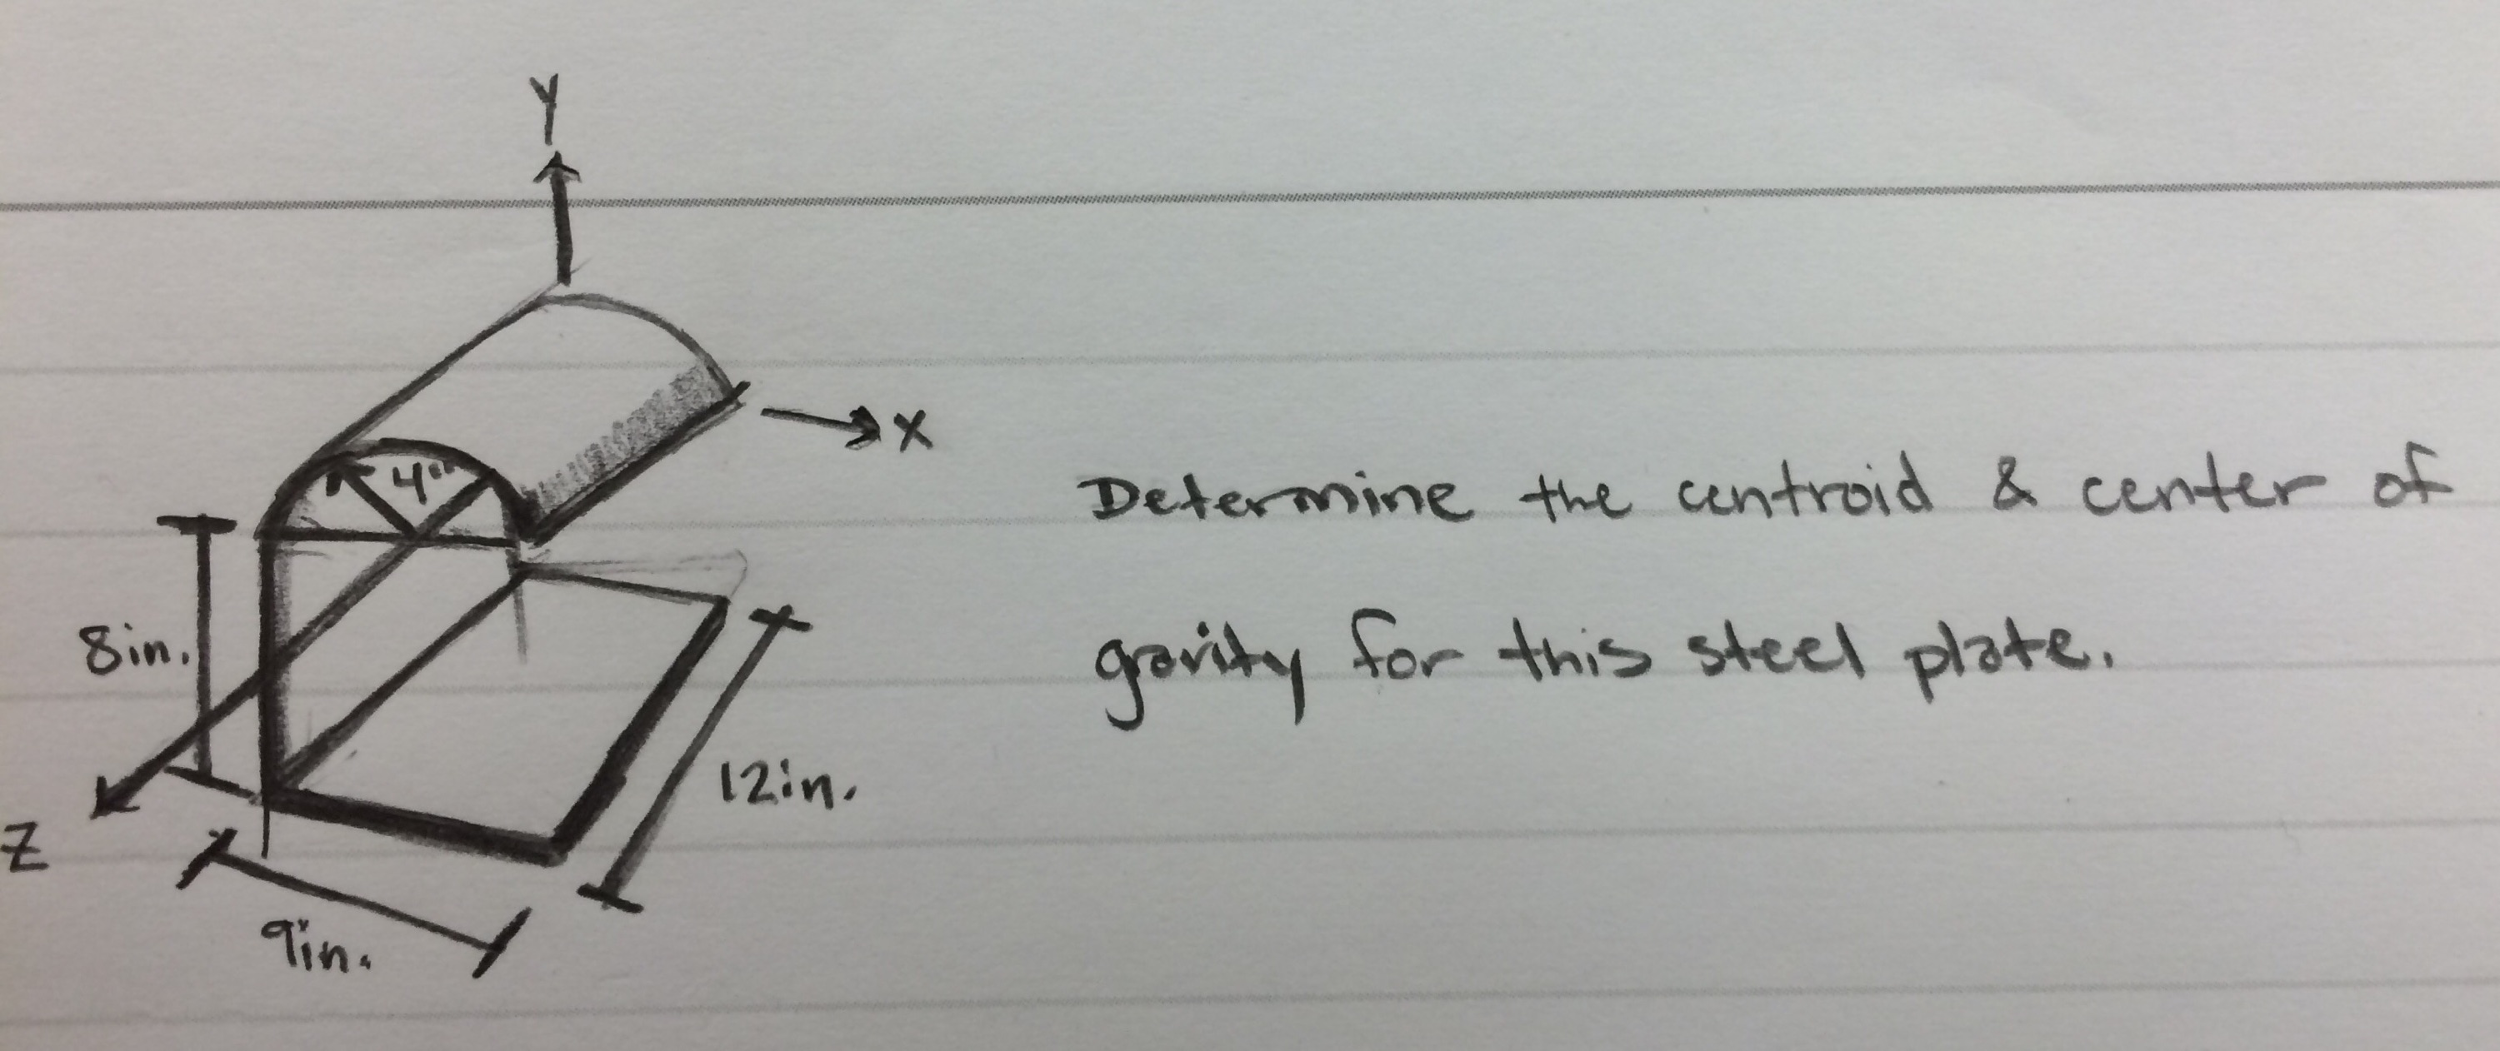 Y
X
4"
Determine the centroid & center of
8in.
gravity for this steel plate.
12in.
Z
9in.